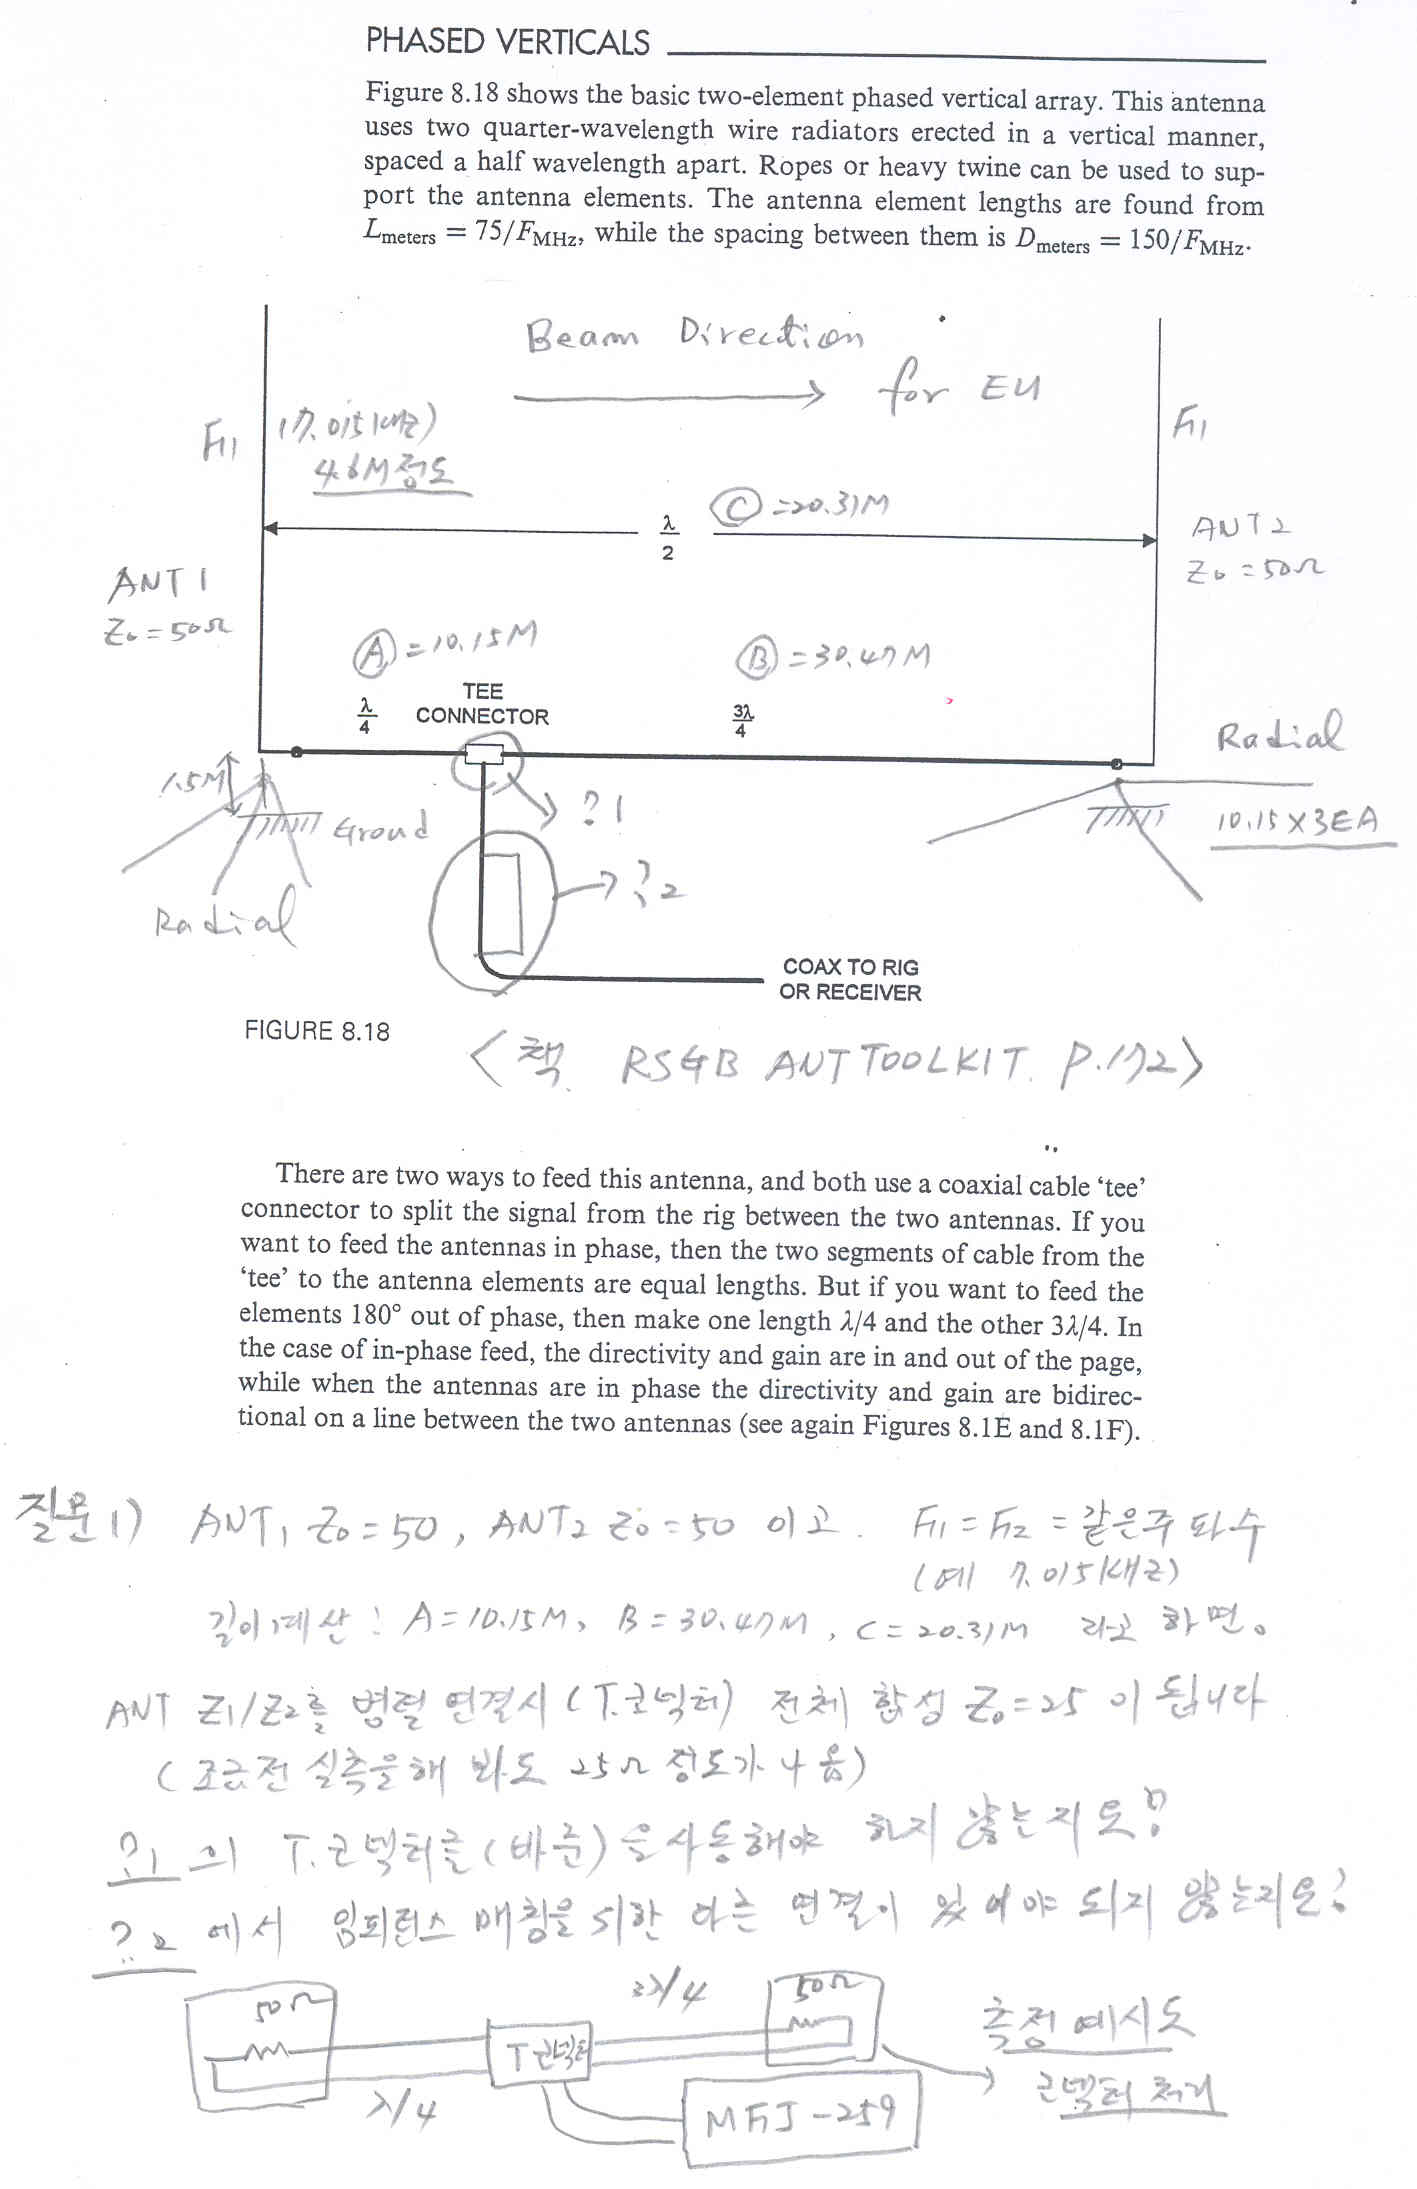 PHASED VERTICALS
Figure 8.18 shows the basic two-element phased vertical array. This antenna
uses two quarter-wavelength wire radiators erected in a vertical manner,
spaced a half wavelength apart. Ropes or heavy twine can be used to sup-
port the antenna elements. The antenna element lengths are found from
Lmeters = 75/FMHz, while the spacing between them is Dmeters = 150/FMHz.
Beam Direction
for EU
(7.015MHz)
정도
λ/2
Ⓒ=20.31M
ANT 1
Zo=50Ω
ANT 2
Zo=50Ω
Ⓐ=10.15M
Ⓑ=30.47M
λ/4
TEE
CONNECTOR
3λ/4
1.5M
Ground
Radial
?1
?2
Radial
10.15×3EA
COAX TO RIG
OR RECEIVER
FIGURE 8.18
<책. RSGB ANT TOOLKIT. P.172>
There are two ways to feed this antenna, and both use a coaxial cable ‘tee’
connector to split the signal from the rig between the two antennas. If you
want to feed the antennas in phase, then the two segments of cable from the
‘tee’ to the antenna elements are equal lengths. But if you want to feed the
elements 180° out of phase, then make one length λ/4 and the other 3λ/4. In
the case of in-phase feed, the directivity and gain are in and out of the page,
while when the antennas are in phase the directivity and gain are bidirec-
tional on a line between the two antennas (see again Figures 8.1E and 8.1F).
질문1) ANT1 Zo=50, ANT2 Zo=50 이고. F1=F2=같은주파수
길이계산: A=10.15M, B=30.47M, C=20.31M 라고 하면.
ANT Z1/Z2를 병렬 연결시(T.코넥터) 전체 합성 Zo=25 이 됩니다
(조금전 실측을해 봐도 25Ω 정도가 나옴)
?1 의 T.코넥터를(바룬)을 사용해야 하지 않는지요?
?2 에서 임피던스 매칭을 위한 다른 연결이 있어야 되지 않는지요?
50Ω
3λ/4
50Ω
T코넥터
λ/4
MFJ-259
측정 예시도
코넥터 처리